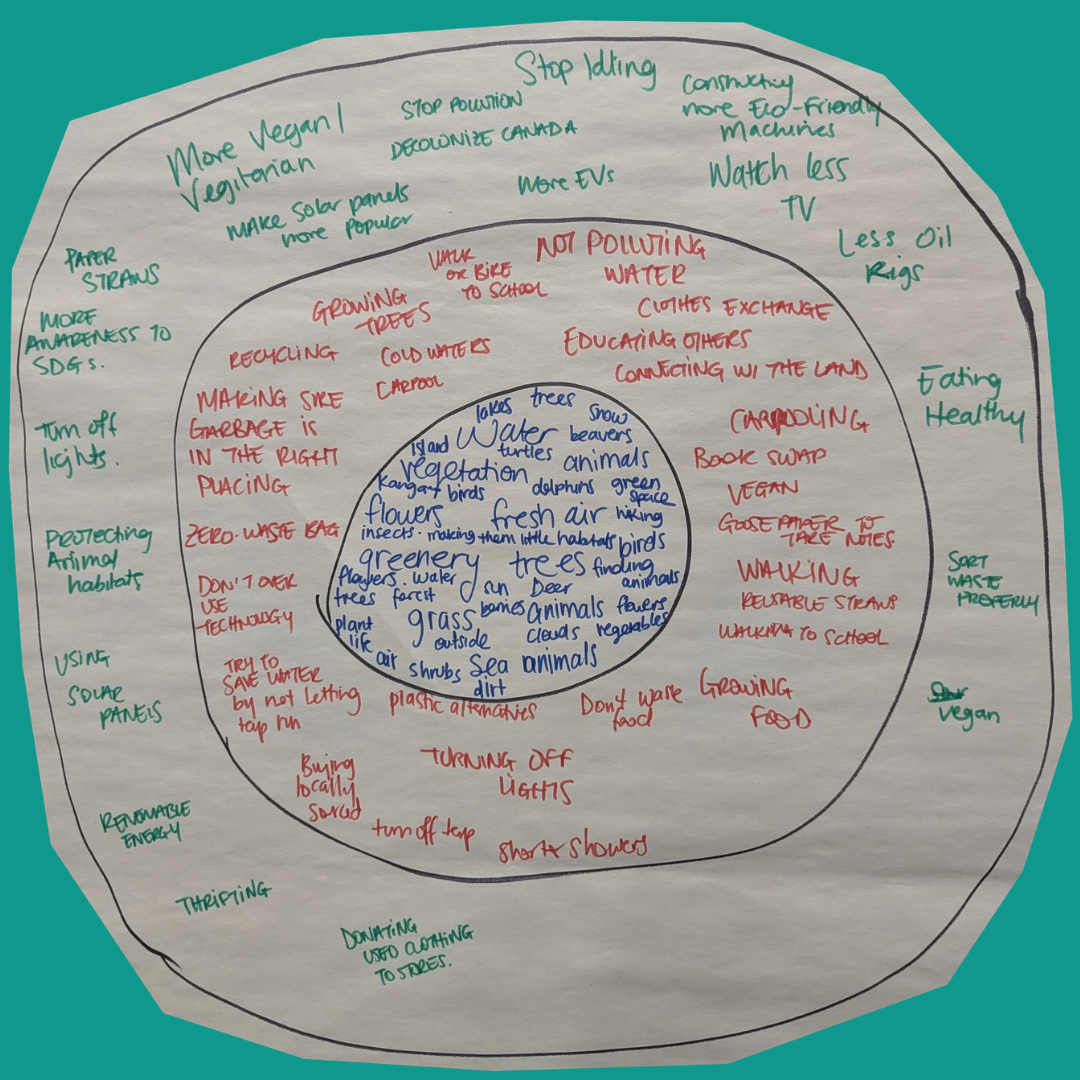 Stop Idling
Constructing
more Eco-Friendly
Machines
STOP POLLUTION
DECOLONIZE CANADA
More Vegan/
Vegitarian
More EVs
Watch less
TV
MAKE Solar panels
more Popular
Less Oil
Rigs
PAPER
STRAWS
MORE
AWARENESS TO
SDGs.
Turn off
lights.
Protecting
Animal
habitats
USING
SOLAR
PANELS
RENEWABLE
ENERGY
THRIFTING
DONATING
USED CLOTHING
TO STORES.
Eating
Healthy
SORT
WASTE
PROPERLY
Vegan
WALK
OR BIKE
TO SCHOOL
NOT POLLUTING
WATER
GROWING
TREES
CLOTHES EXCHANGE
RECYCLING
COLD WATERS
EDUCATING OTHERS
CARPOOL
CONNECTING W/ THE LAND
MAKING SURE
GARBAGE is
IN THE RIGHT
PLACING
CARPOOLING
BOOK SWAP
VEGAN
ZERO-WASTE BAG
GOOSE PAPER TO
TAKE NOTES
DON'T OVER
USE
TECHNOLOGY
WALKING
REUSABLE STRAWS
WALKING TO SCHOOL
TRY TO
SAVE WATER
by not letting
tap run
plastic alternatives
Don't waste
food
GROWING
FOOD
Buying
locally
TURNING OFF
LIGHTS
turn off tap
shorter showers
lakes trees snow
island Water beavers
turtles
vegetation animals
birds dolphins green
space
flowers fresh air hiking
insects - making them little habitats birds
greenery trees finding
animals
water sun Deer
trees forest
grass animals flowers
plant
life outside clouds vegetables
air shrubs Sea animals
dirt